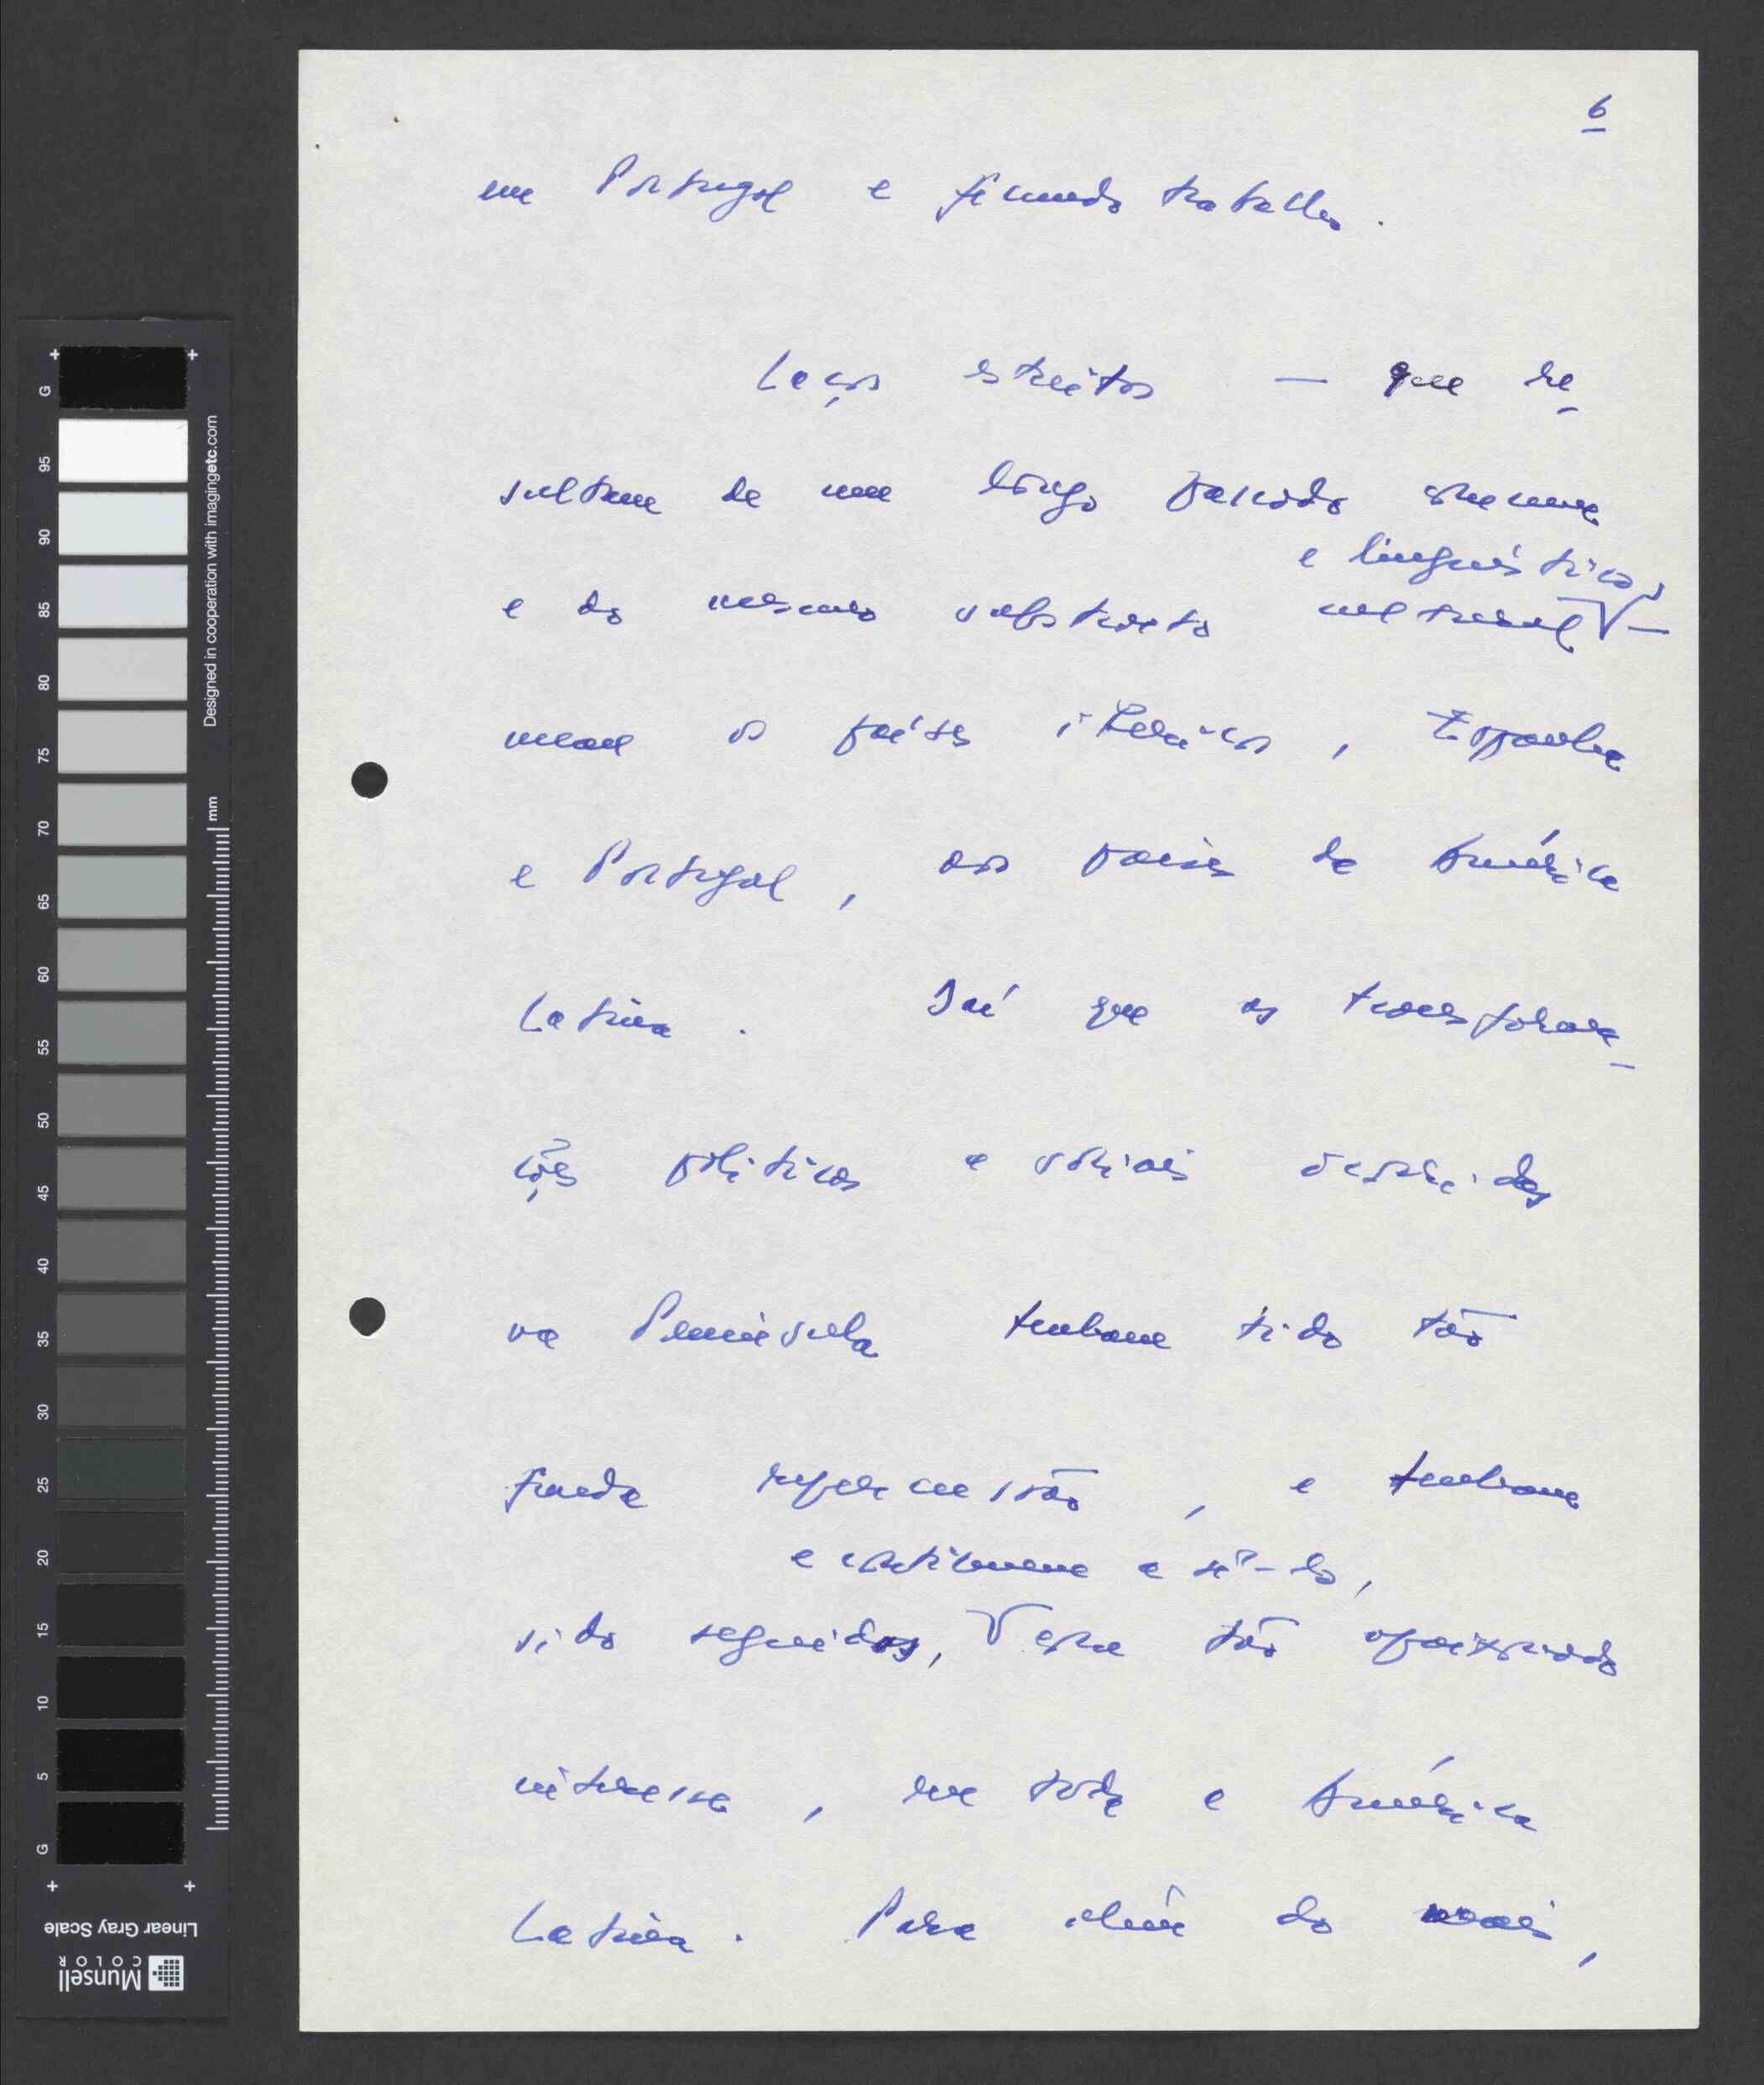 6
em Portugal e fecundo trabalho.
Laços estreitos — que re-
sultam de um longo passado comum
e linguístico,
e do mesmo substrato cultural V —
unem os países ibéricos, Espanha
e Portugal, aos países da América
Latina. Daí que as transforma-
ções políticas e sociais ocorridas
na Península tenham tido tão
funda repercussão, e tenham
e continuem a sê-lo,
sido seguidas, V com tão apaixonado
interesse, em toda a América
Latina. Para além do mais,
G
95
90
85
80
75
70
65
60
55
50
45
40
35
30
25
20
15
10
5
G
Designed in cooperation with imagingetc.com
mm
Linear Gray Scale
Munsell
COLOR